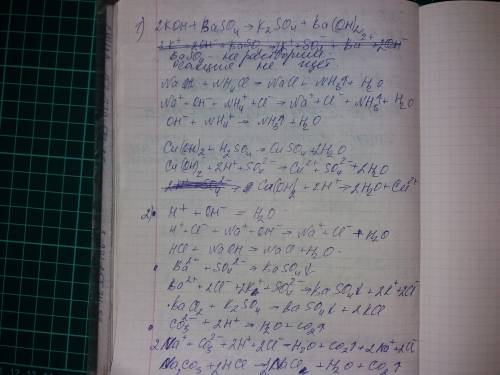 1) 2KOH + BaSO₄ → K₂SO₄ + Ba(OH)₂
BaSO₄ - не растворим,
реакция не идет.
NaOH + NH₄Cl → NaCl + NH₃↑ + H₂O
Na⁺ + OH⁻ + NH₄⁺ + Cl⁻ → Na⁺ + Cl⁻ + NH₃↑ + H₂O
OH⁻ + NH₄⁺ → NH₃↑ + H₂O
Cu(OH)₂ + H₂SO₄ → CuSO₄ + 2H₂O
Cu(OH)₂ + 2H⁺ + SO₄²⁻ → Cu²⁺ + SO₄²⁻ + 2H₂O
Cu(OH)₂ + 2H⁺ → 2H₂O + Cu²⁺
2) • H⁺ + OH⁻ = H₂O
H⁺ + Cl⁻ + Na⁺ + OH⁻ → Na⁺ + Cl⁻ + H₂O
HCl + NaOH → NaCl + H₂O
• Ba²⁺ + SO₄²⁻ → BaSO₄↓
Ba²⁺ + 2Cl⁻ + 2K⁺ + SO₄²⁻ → BaSO₄↓ + 2K⁺ + 2Cl⁻
BaCl₂ + K₂SO₄ → BaSO₄↓ + 2KCl
• CO₃²⁻ + 2H⁺ → H₂O + CO₂↑
2Na⁺ + CO₃²⁻ + 2H⁺ + 2Cl⁻ → H₂O + CO₂↑ + 2Na⁺ + 2Cl⁻
Na₂CO₃ + 2HCl → 2NaCl + H₂O + CO₂↑